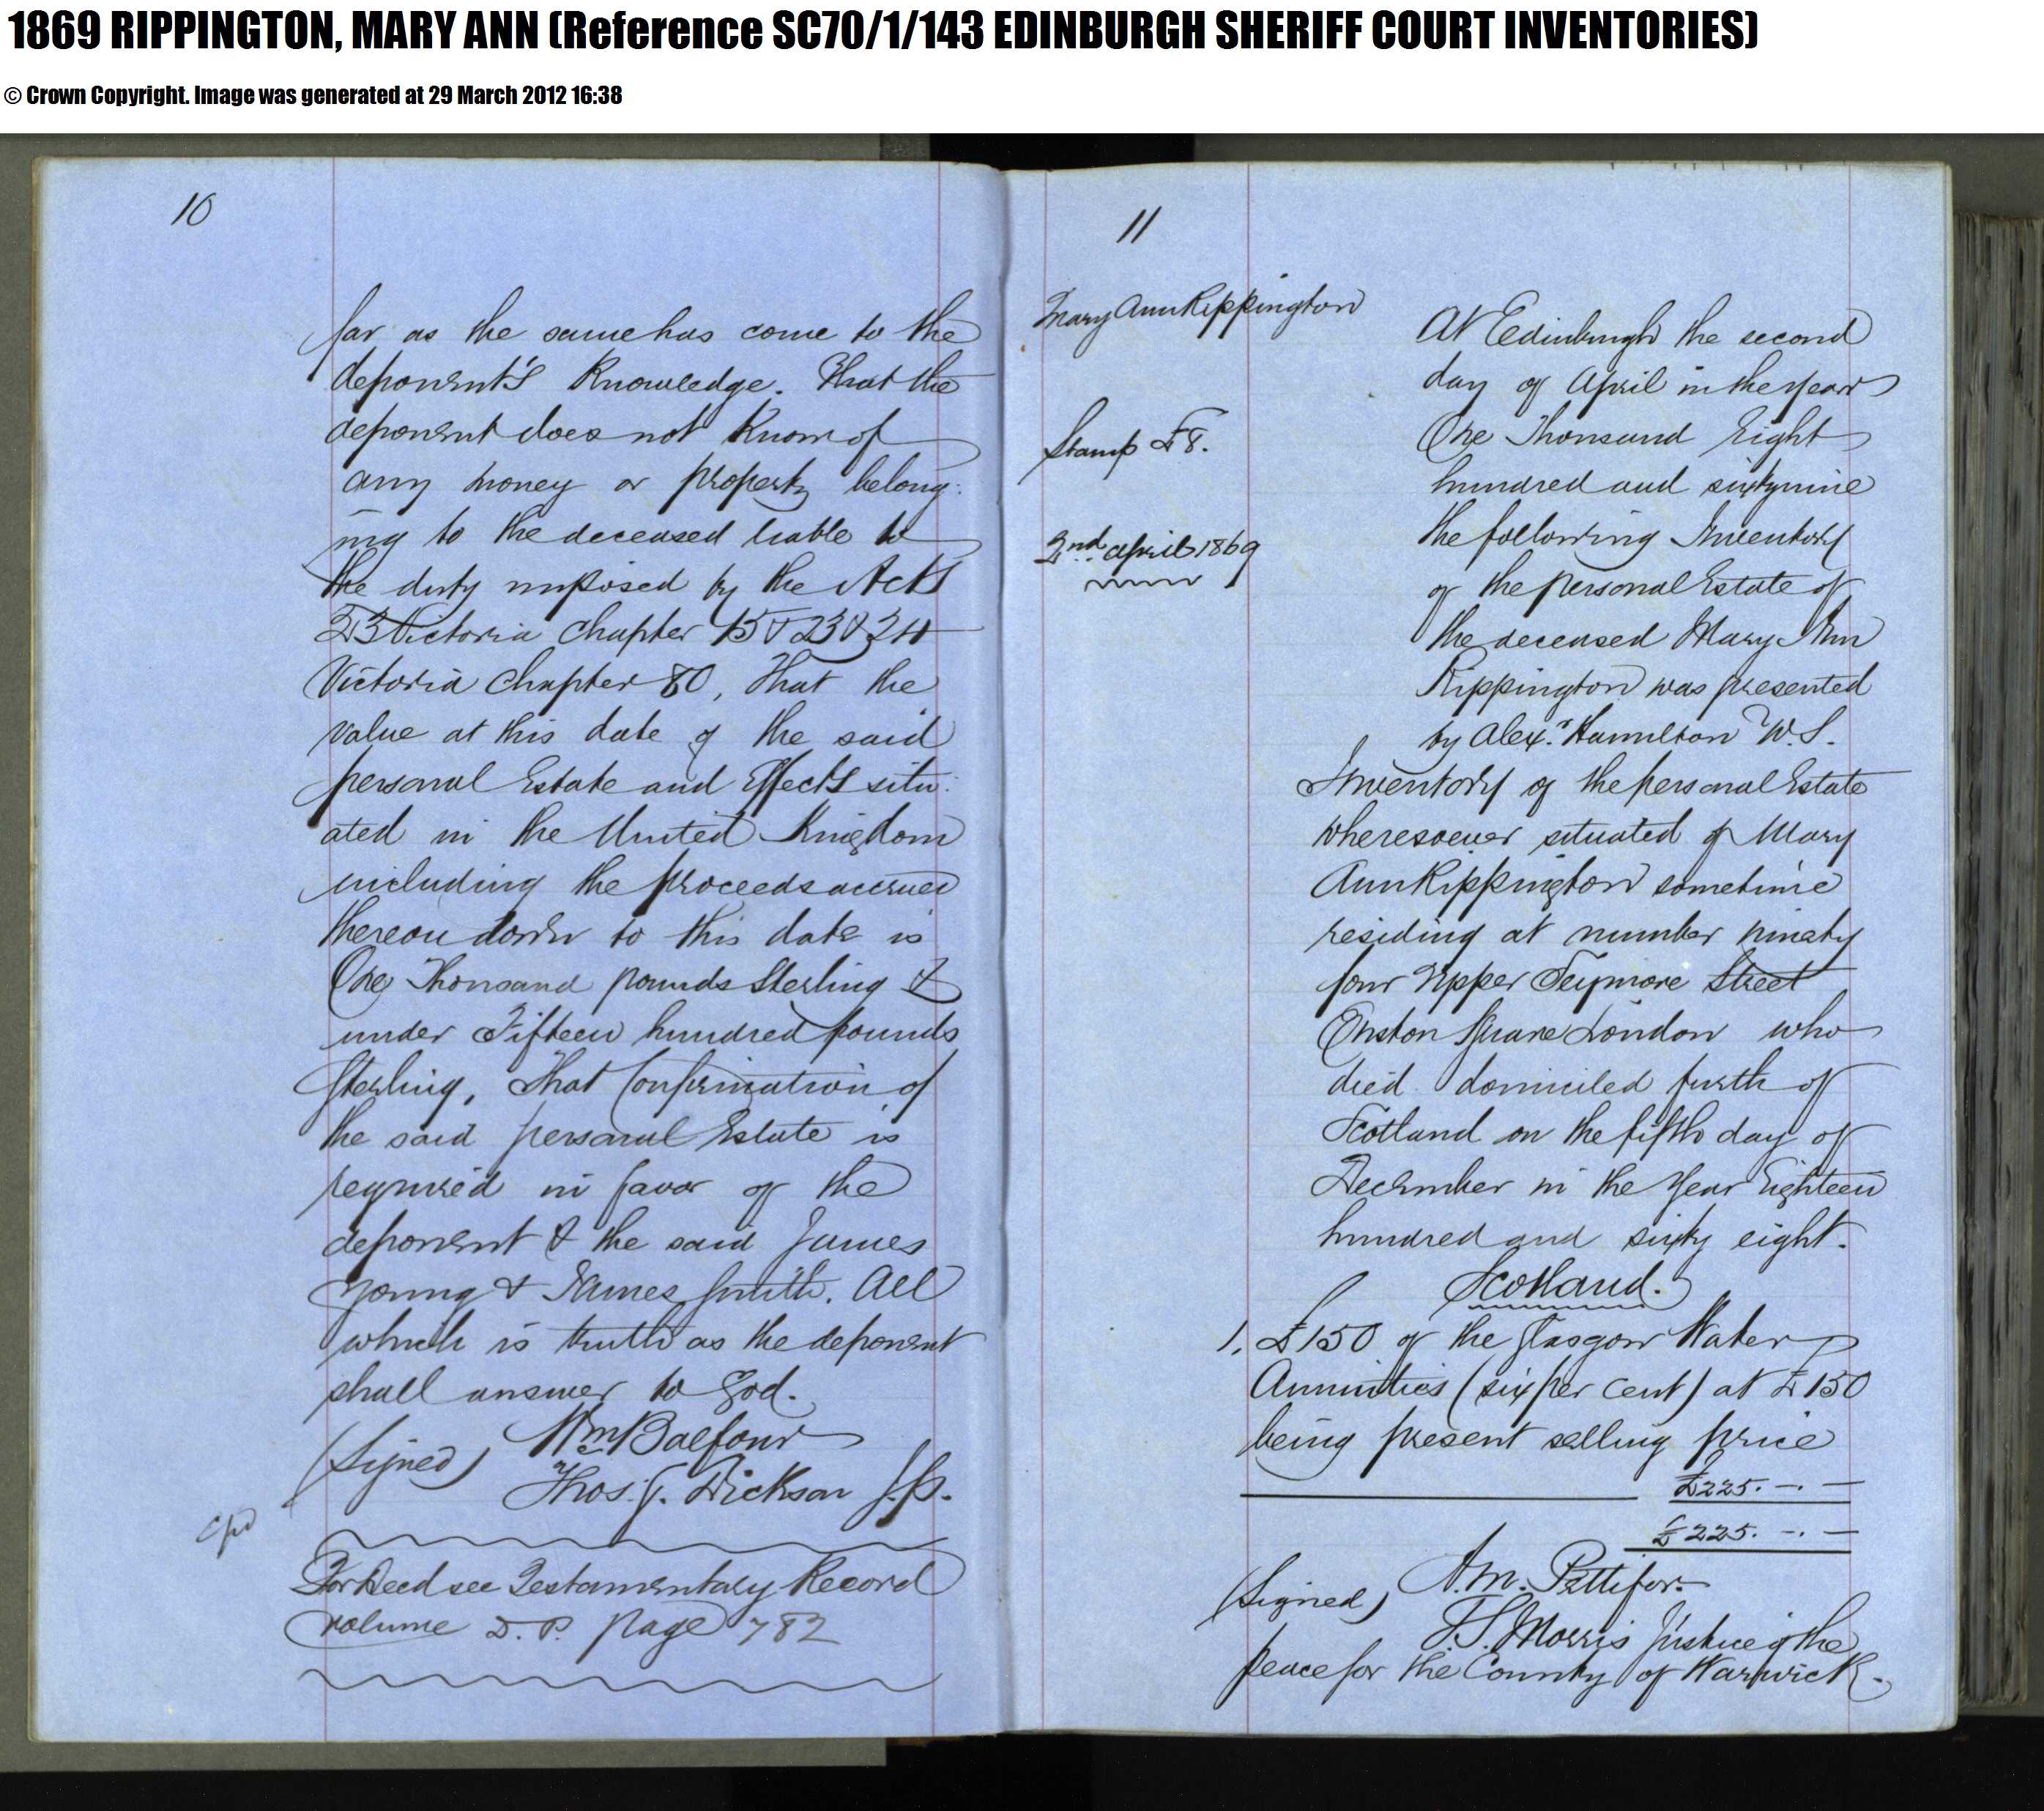 1869 RIPPINGTON, MARY ANN (Reference SC70/1/143 EDINBURGH SHERIFF COURT INVENTORIES)
© Crown Copyright. Image was generated at 29 March 2012 16:38
10
far as the same has come to the
deponent's Knowledge. That the
deponent does not Know of
any money or property belong:
ing to the deceased liable to
the duty imposed by the Acts
Victoria Chapter 15 & 23 & 24
Victoria Chapter 80, That the
value at this date of the said
personal Estate and Effects situ:
ated in the United Kingdom
including the proceeds accrued
thereon down to this date is
One Thousand pounds Sterling &
under Fifteen hundred pounds
Sterling, That Confirmation of
the said personal Estate is
required in favor of the
deponent & the said James
Young & James Smith. All
which is truth as the deponent
shall answer to God.
(Signed) Wm Balfour
Thos. J. Dickson J.P.
For Deed see Testamentary Record
volume D. P. page 782
11
Mary Ann Rippington
Stamp £8.
2nd April 1869
At Edinburgh the second
day of April in the year
One Thousand Eight
hundred and sixty nine
the following Inventory
of the personal Estate of
the deceased Mary Ann
Rippington was presented
by Alexr. Hamilton W.S.
Inventory of the personal Estate
wheresoever situated of Mary
Ann Rippington sometime
residing at number ninety
four Upper Seymore Street
Euston Square London who
died domiciled furth of
Scotland on the fifth day of
December in the year Eighteen
hundred and sixty eight.
Scotland.
1. £150 of the Glasgow Water
Annuities (six per cent) at £150
being present selling price
£225. -. -
£225. -. -
(Signed) A. M. Pettifor.
T. S. Morris Justice of the
peace for the County of Warwick.